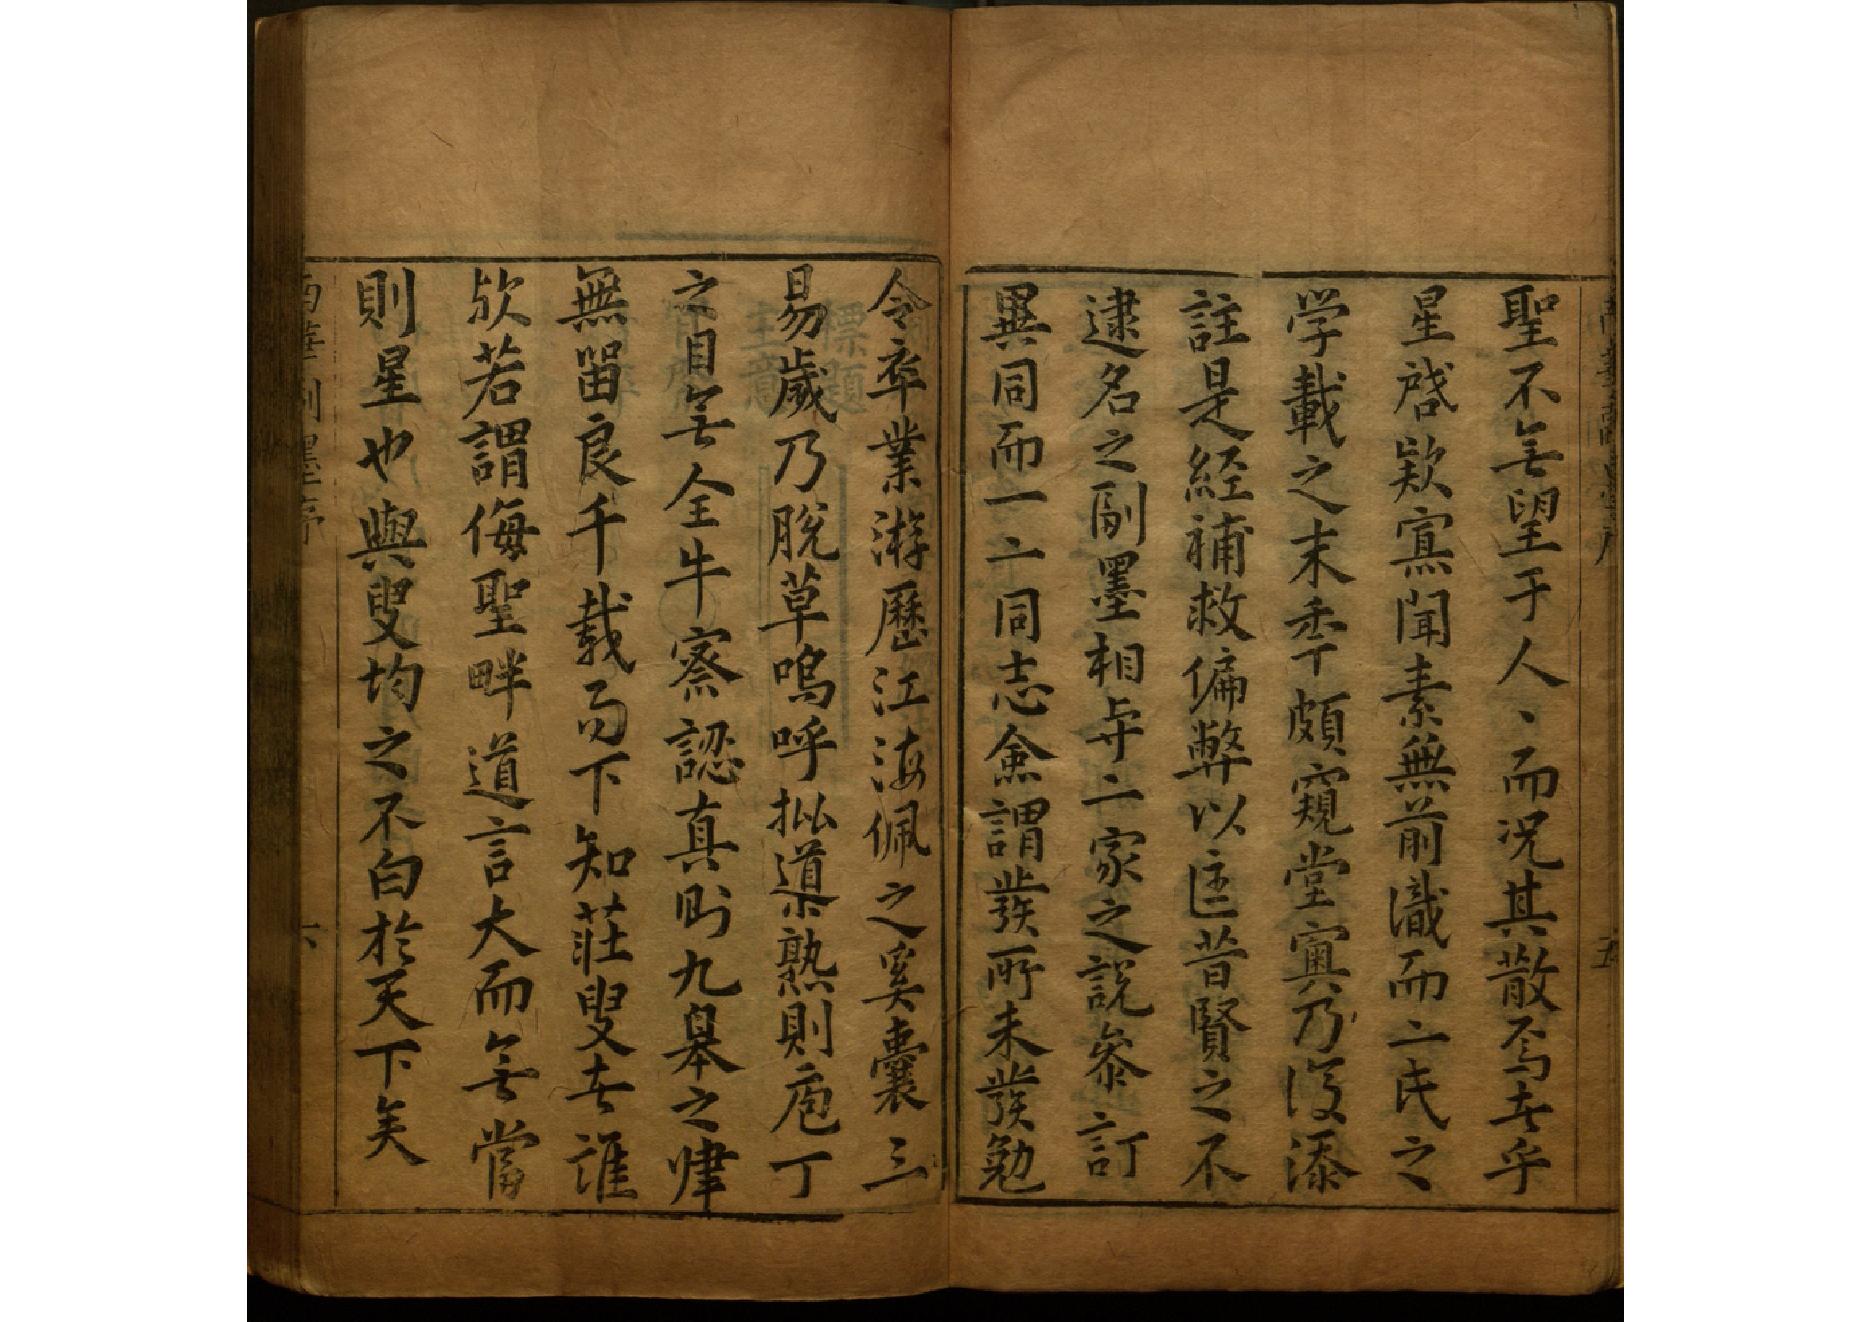 聖不무望于人丶而况其散焉者乎
星啓欵寡聞素無前識而二氏之
学載之末季頗窺堂奥乃復添
註是経補救偏弊以匡昔賢之不
逮名之副墨相与二家之説叅訂
異同而一二同志僉謂發所未發勉
令卒業游歴江海佩之奚囊三
易歳乃脱草嗚呼批導熟則庖丁
之目无全牛察認真則九皋之肆
無留良千载而下知莊叟者誰
欤若謂侮聖畔道言大而无當
則星也與叟均之不白於天下矣
南華副墨序
六